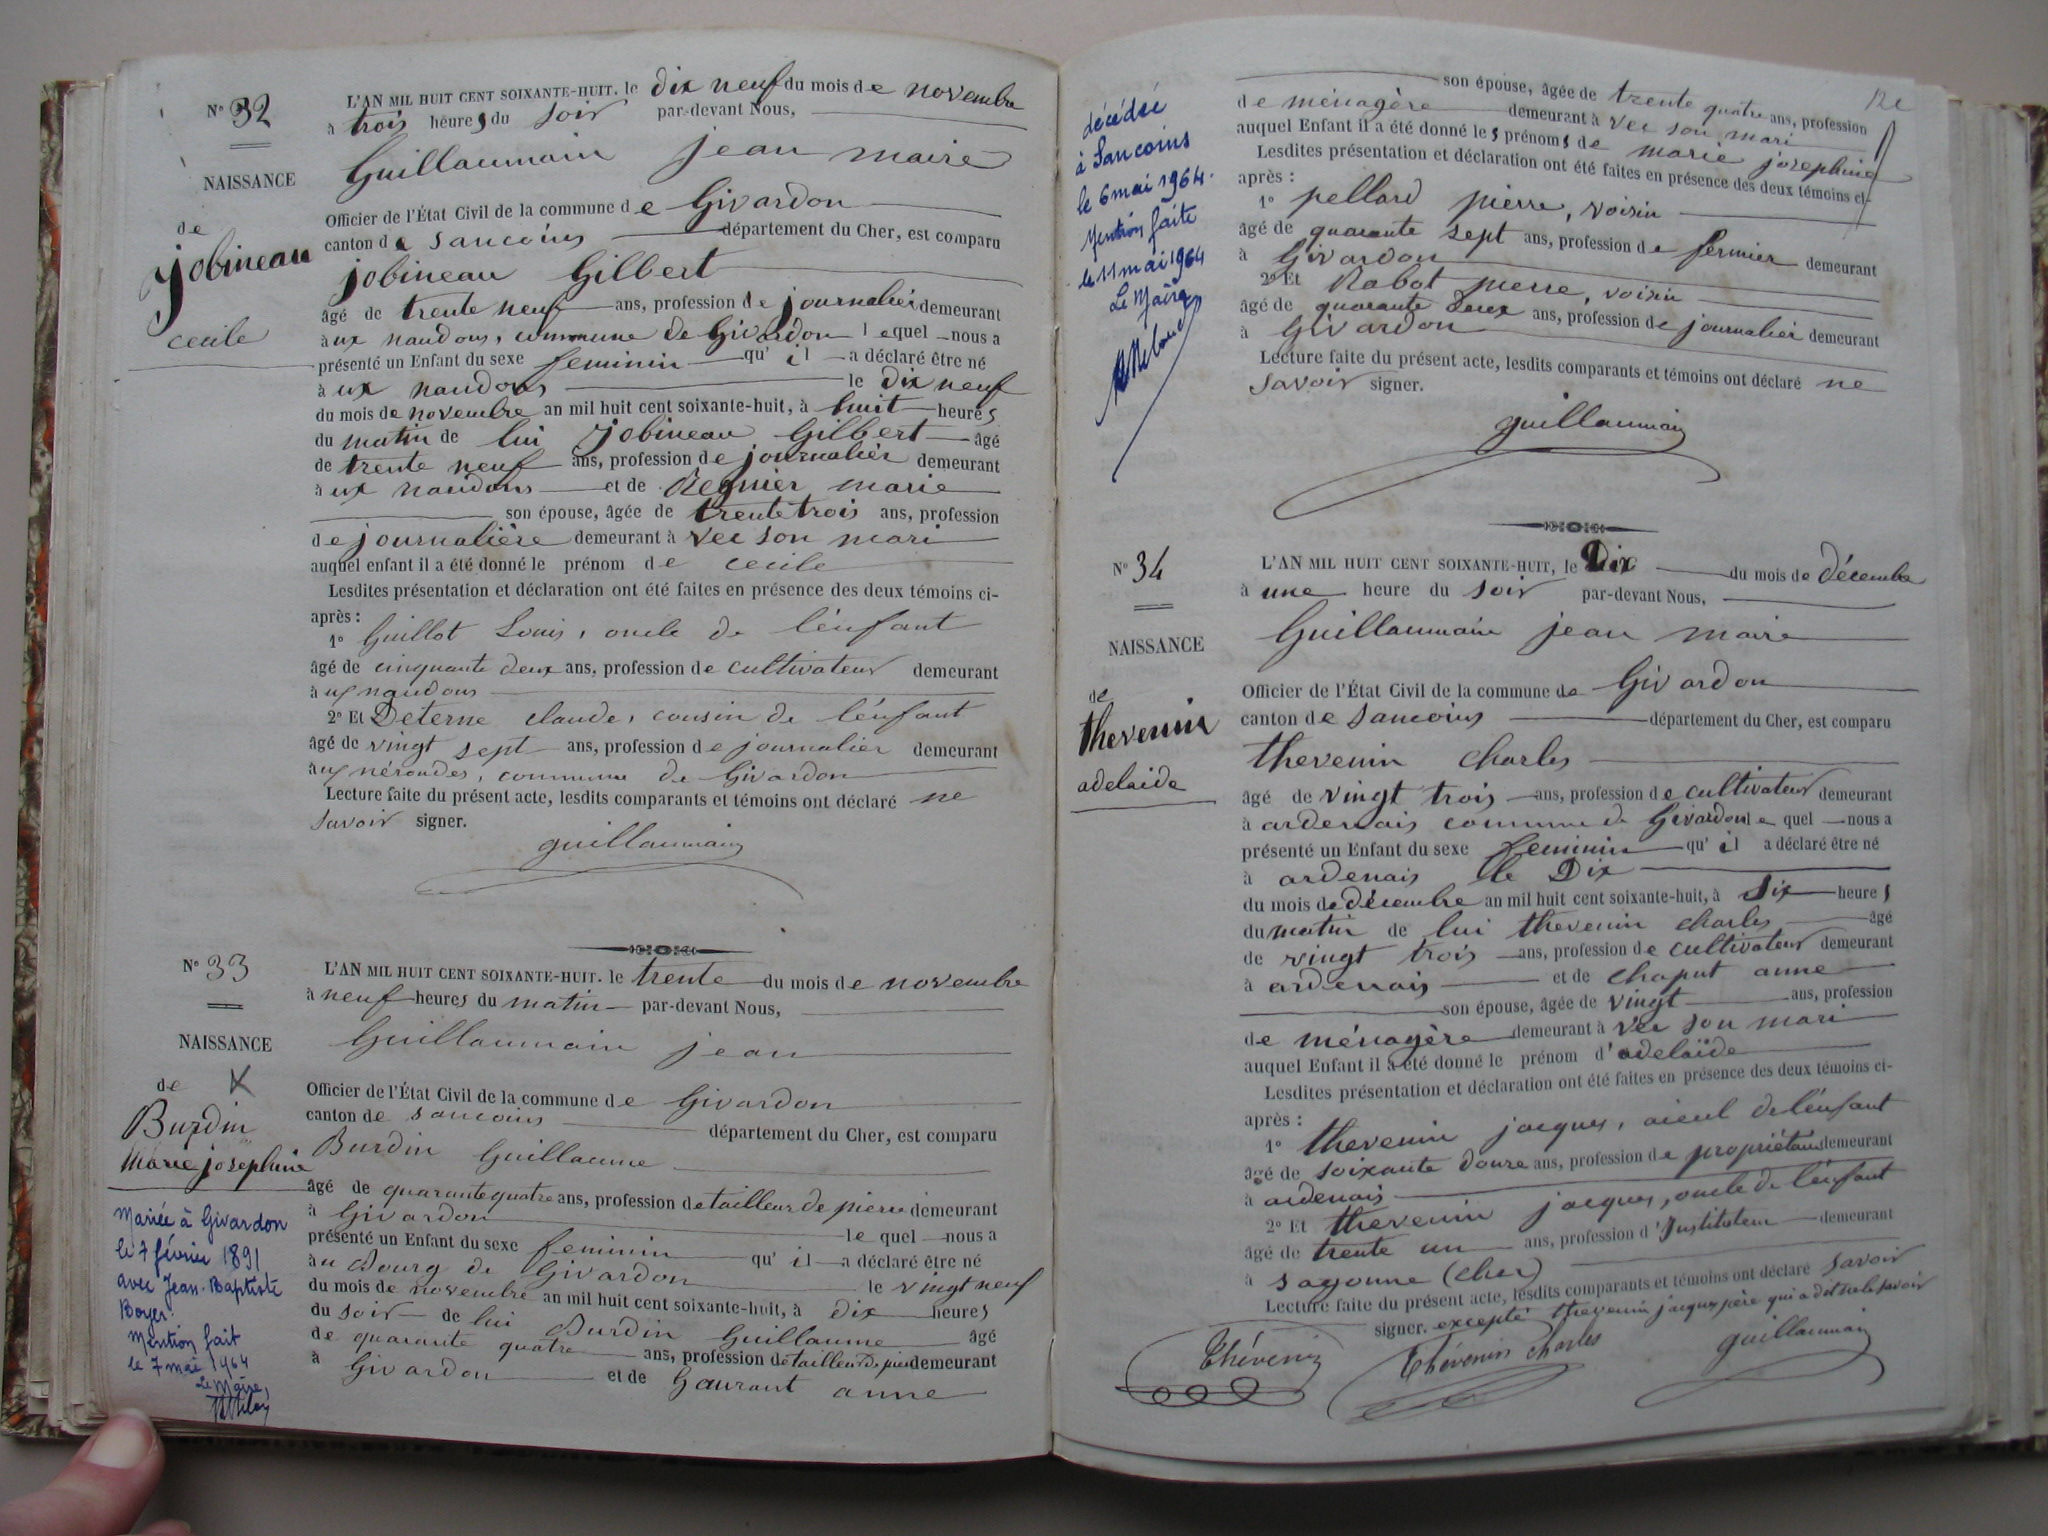 N° 32
NAISSANCE
de
Jobineau
cecile
L'AN MIL HUIT CENT SOIXANTE-HUIT. le dix neuf du mois de novembre
à trois heures du soir par-devant Nous,
Guillaumain jean maire
Officier de l'État Civil de la commune de Givardon
canton de sancoins département du Cher, est comparu
jobineau Gilbert
âgé de trente neuf ans, profession de journalier demeurant
à ux naudons, commune de Givardon lequel nous a
présenté un Enfant du sexe feminin qu'il a déclaré être né
à ux naudons le dix neuf
du mois de novembre an mil huit cent soixante-huit, à huit heures
du matin de lui jobineau Gilbert âgé
de trente neuf ans, profession de journalier demeurant
à ux naudons et de Regnier marie
son épouse, âgée de trente trois ans, profession
de journalière demeurant à vec son mari
auquel enfant il a été donné le prénom de cecile
Lesdites présentation et déclaration ont été faites en présence des deux témoins ci-
après :
1° Guillot Louis, oncle de l'énfant
âgé de cinquante deux ans, profession de cultivateur demeurant
à ux naudons
2° Et Deterne claude, cousin de l'énfant
âgé de vingt sept ans, profession de journalier demeurant
à ux néraudes, commune de Givardon
Lecture faite du présent acte, lesdits comparants et témoins ont déclaré ne
savoir signer.
guillaumain
N° 33
NAISSANCE
de X
Burdin
Marie josephine
Mariée à Givardon
le 7 février 1891
avec Jean-Baptiste
Boyer
Mention fait
le 7 mai 1964
Le Maire,
L'AN MIL HUIT CENT SOIXANTE-HUIT. le trente du mois de novembre
à neuf heures du matin par-devant Nous,
Guillaumain jean
Officier de l'État Civil de la commune de Givardon
canton de sancoins département du Cher, est comparu
Burdin Guillaume
âgé de quarante quatre ans, profession de tailleur de pierre demeurant
à Givardon le quel nous a
présenté un Enfant du sexe feminin qu'il a déclaré être né
à u Bourg de Givardon le vingt neuf
du mois de novembre an mil huit cent soixante-huit, à dix heures
du soir de lui Burdin Guillaume âgé
de quarante quatre ans, profession de tailleur de pierre demeurant
à Givardon et de Gaurant anne
décédée
à Sancoins
le 6 mai 1964.
Mention faite
le 11 mai 1964
Le Maire
son épouse, âgée de trente quatre ans, profession
de ménagère demeurant à vec son mari
auquel Enfant il a été donné les prénoms de marie josephine
Lesdites présentation et déclaration ont été faites en présence des deux témoins ci-
après :
1° pellard pierre, voisin
âgé de quarante sept ans, profession de fermier demeurant
à Givardon
2° Et Rabot pierre, voisin
âgé de quarante deux ans, profession de journalier demeurant
à Givardon
Lecture faite du présent acte, lesdits comparants et témoins ont déclaré ne
savoir signer.
guillaumain
N° 34
NAISSANCE
de
thevenin
adelaide
L'AN MIL HUIT CENT SOIXANTE-HUIT, le Dix du mois de décembre
à une heure du soir par-devant Nous,
Guillaumain jean maire
Officier de l'État Civil de la commune de Givardon
canton de sancoins département du Cher, est comparu
thevenin charles
âgé de vingt trois ans, profession de cultivateur demeurant
à ardenais commune de Givardon le quel nous a
présenté un Enfant du sexe feminin qu'il a déclaré être né
à ardenais le Dix
du mois de décembre an mil huit cent soixante-huit, à Six heures
du matin de lui thevenin charles âgé
de vingt trois ans, profession de cultivateur demeurant
à ardenais et de chaput anne
son épouse, âgée de vingt ans, profession
de ménagère demeurant à vec son mari
auquel Enfant il a été donné le prénom d'adelaïde
Lesdites présentation et déclaration ont été faites en présence des deux témoins ci-
après :
1° thevenin jacques, aieul de l'énfant
âgé de soixante douze ans, profession de propriétaire demeurant
à ardenais
2° Et thevenin jacques, oncle de l'énfant
âgé de trente un ans, profession d'Instituteur demeurant
à sagonne (cher)
Lecture faite du présent acte, lesdits comparants et témoins ont déclaré savoir
signer. excepté thevenin jacques père qui a dit ne le savoir
Thévenin Thévenin charles guillaumain